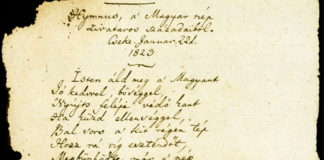 Hymnus, a' Magyar nép
zivataros századaiból.
Cseke, Januar. 22d.
1823
Isten áld meg a' Magyart
Jó kedvvel, bőséggel,
Nyújts feléje védő kart
Ha küzd ellenséggel;
Bal sors a' kit régen tép
Hozz rá víg esztendőt,
Megbűnhődte már e' nép